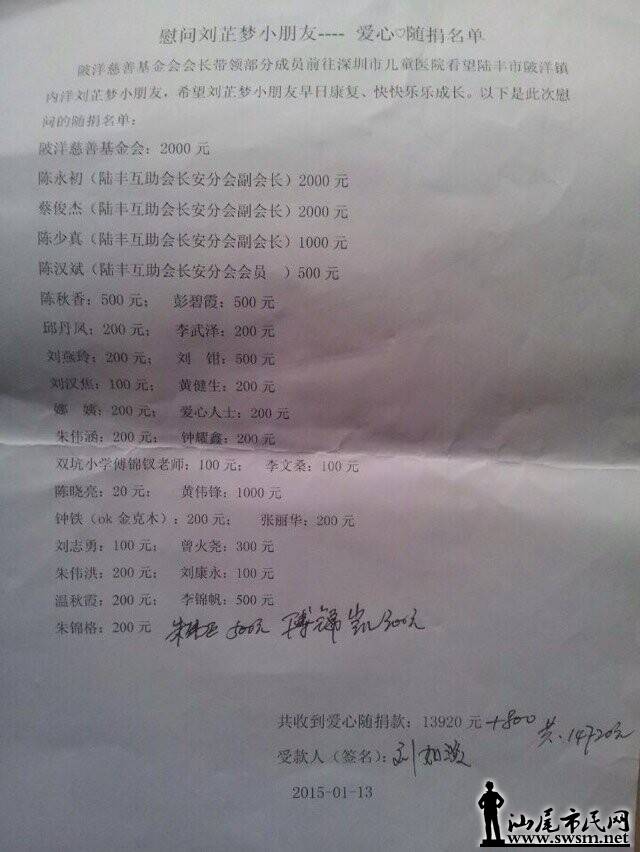 慰问刘芷梦小朋友---- 爱心♡随捐名单
陂洋慈善基金会会长带领部分成员前往深圳市儿童医院看望陆丰市陂洋镇
内洋刘芷梦小朋友，希望刘芷梦小朋友早日康复、快快乐乐成长。以下是此次慰
问的随捐名单：
陂洋慈善基金会：2000 元
陈永初（陆丰互助会长安分会副会长）2000 元
蔡俊杰（陆丰互助会长安分会副会长）2000 元
陈少真（陆丰互助会长安分会副会长）1000 元
陈汉斌（陆丰互助会长安分会会员 ）500 元
陈秋香：500 元； 彭碧霞：500 元
邱丹凤：200 元； 李武泽：200 元
刘燕玲：200 元； 刘 钳：500 元
刘汉焦：100 元； 黄健生：200 元
娜 姨：200 元； 爱心人士：200 元
朱伟涵：200 元； 钟耀鑫：200 元
双坑小学傅锦钗老师：100 元； 李文桑：100 元
陈晓亮：20 元； 黄伟锋：1000 元
钟铁（ok 金克木）：200 元； 张丽华：200 元
刘志勇：100 元； 曾火尧：300 元
朱伟洪：200 元； 刘康永：100 元
温秋霞：200 元； 李锦帆：500 元
朱锦格：200 元 朱 500元 傅锦凯300元
共收到爱心随捐款：13920 元+800 共：14720元
受款人（签名）：刘
2015-01-13
汕尾市民网
www.swsm.net